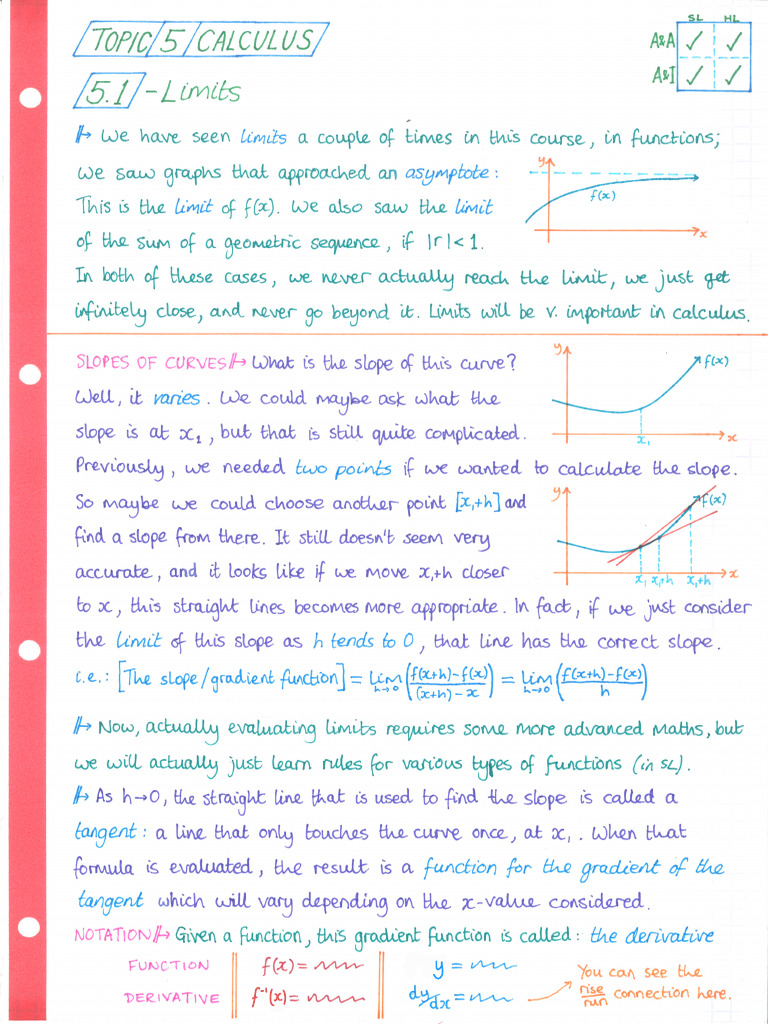 TOPIC 5 CALCULUS
SL HL
A&A ✓ ✓
A&I ✓ ✓
5.1 - Limits
↦ We have seen limits a couple of times in this course, in functions;
we saw graphs that approached an asymptote:
This is the limit of f(x). We also saw the limit
of the sum of a geometric sequence, if |r| < 1.
y
f(x)
x
In both of these cases, we never actually reach the limit, we just get
infinitely close, and never go beyond it. Limits will be v. important in calculus.
SLOPES OF CURVES ↦ What is the slope of this curve?
Well, it varies. We could maybe ask what the
slope is at x₁, but that is still quite complicated.
y
f(x)
x₁
x
Previously, we needed two points if we wanted to calculate the slope.
So maybe we could choose another point [x₁+h] and
find a slope from there. It still doesn't seem very
accurate, and it looks like if we move x₁+h closer
y
f(x)
x₁ x₁+h x₁+h x
to x, this straight lines becomes more appropriate. In fact, if we just consider
the limit of this slope as h tends to 0, that line has the correct slope.
i.e.: [The slope/gradient function] = Lim h→0 (f(x+h)-f(x) / (x+h)-x) = Lim h→0 (f(x+h)-f(x) / h)
↦ Now, actually evaluating limits requires some more advanced maths, but
we will actually just learn rules for various types of functions (in SL).
↦ As h→0, the straight line that is used to find the slope is called a
tangent: a line that only touches the curve once, at x₁. When that
formula is evaluated, the result is a function for the gradient of the
tangent which will vary depending on the x-value considered.
NOTATION ↦ Given a function, this gradient function is called: the derivative
FUNCTION f(x) = y =
DERIVATIVE f⁻¹(x) = dy/dx =
You can see the
rise/run connection here.